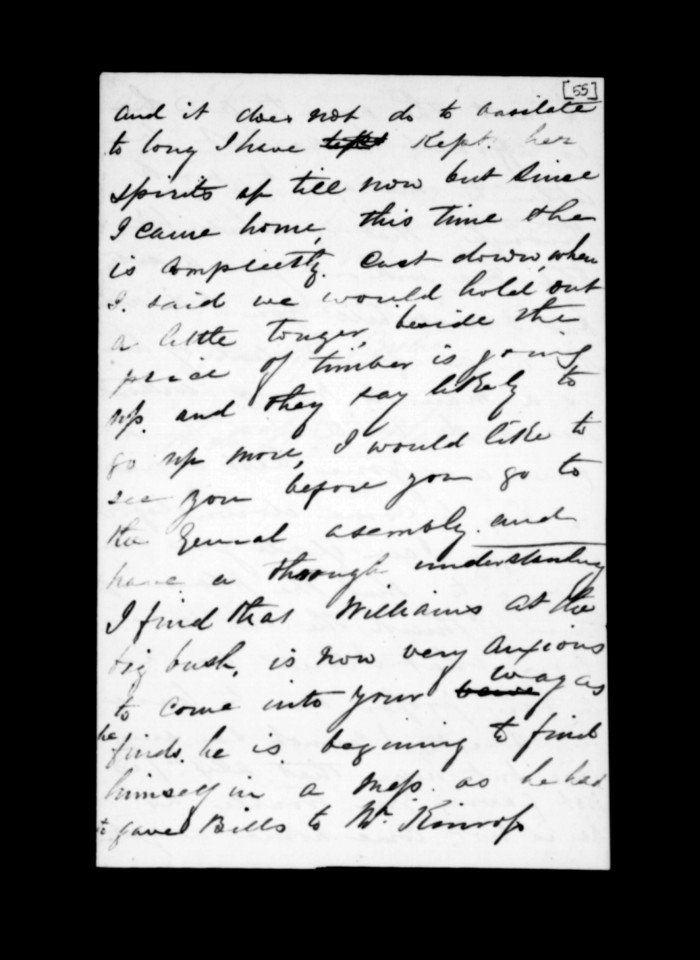 [55]
and it does not do to ansilate
to long I have kept Kept. her
spirits up till now but since
I came home, this time the
is compleetly. Cast down, when
I. said we would hold out
a little longer, beside the
price of timber is going
up. and they say likely to
go up more, I would like to
see you before you go to
the General asembly. and
have a through understanding
I find that Williams at the
big bush, is now very anxious
to come into your way as
he finds. he is begining to find
himself in a mess. as he had
to gave Bills to Mr. Kinross